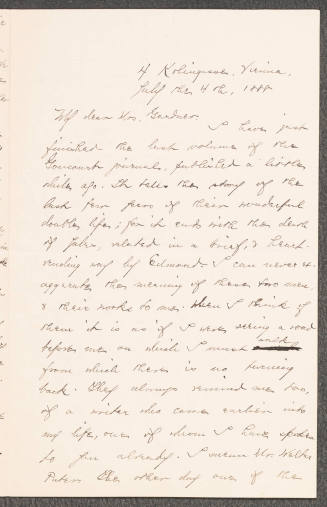 4 Kolingasse, Vienna,
July the 4th, 1888
My dear Mrs. Gardner.
I have just
finished the last volume of the
Goncourt journals, published a little
while ago. It tells the story of the
last few years of their wonderful
double life; for it ends with the death
of Jules, related in a brief, & heart-
rending way by Edmond. I can never ex-
aggerate the meaning of these two men,
& their works to me. When I think of
them it is as if I were seeing a road
before me on which I must walk
from which there is no turning
back. They always remind me too,
of a writer who came earlier into
my life, one of whom I have spoken
to you already. I mean Mr. Walter
Pater. The other day one of the